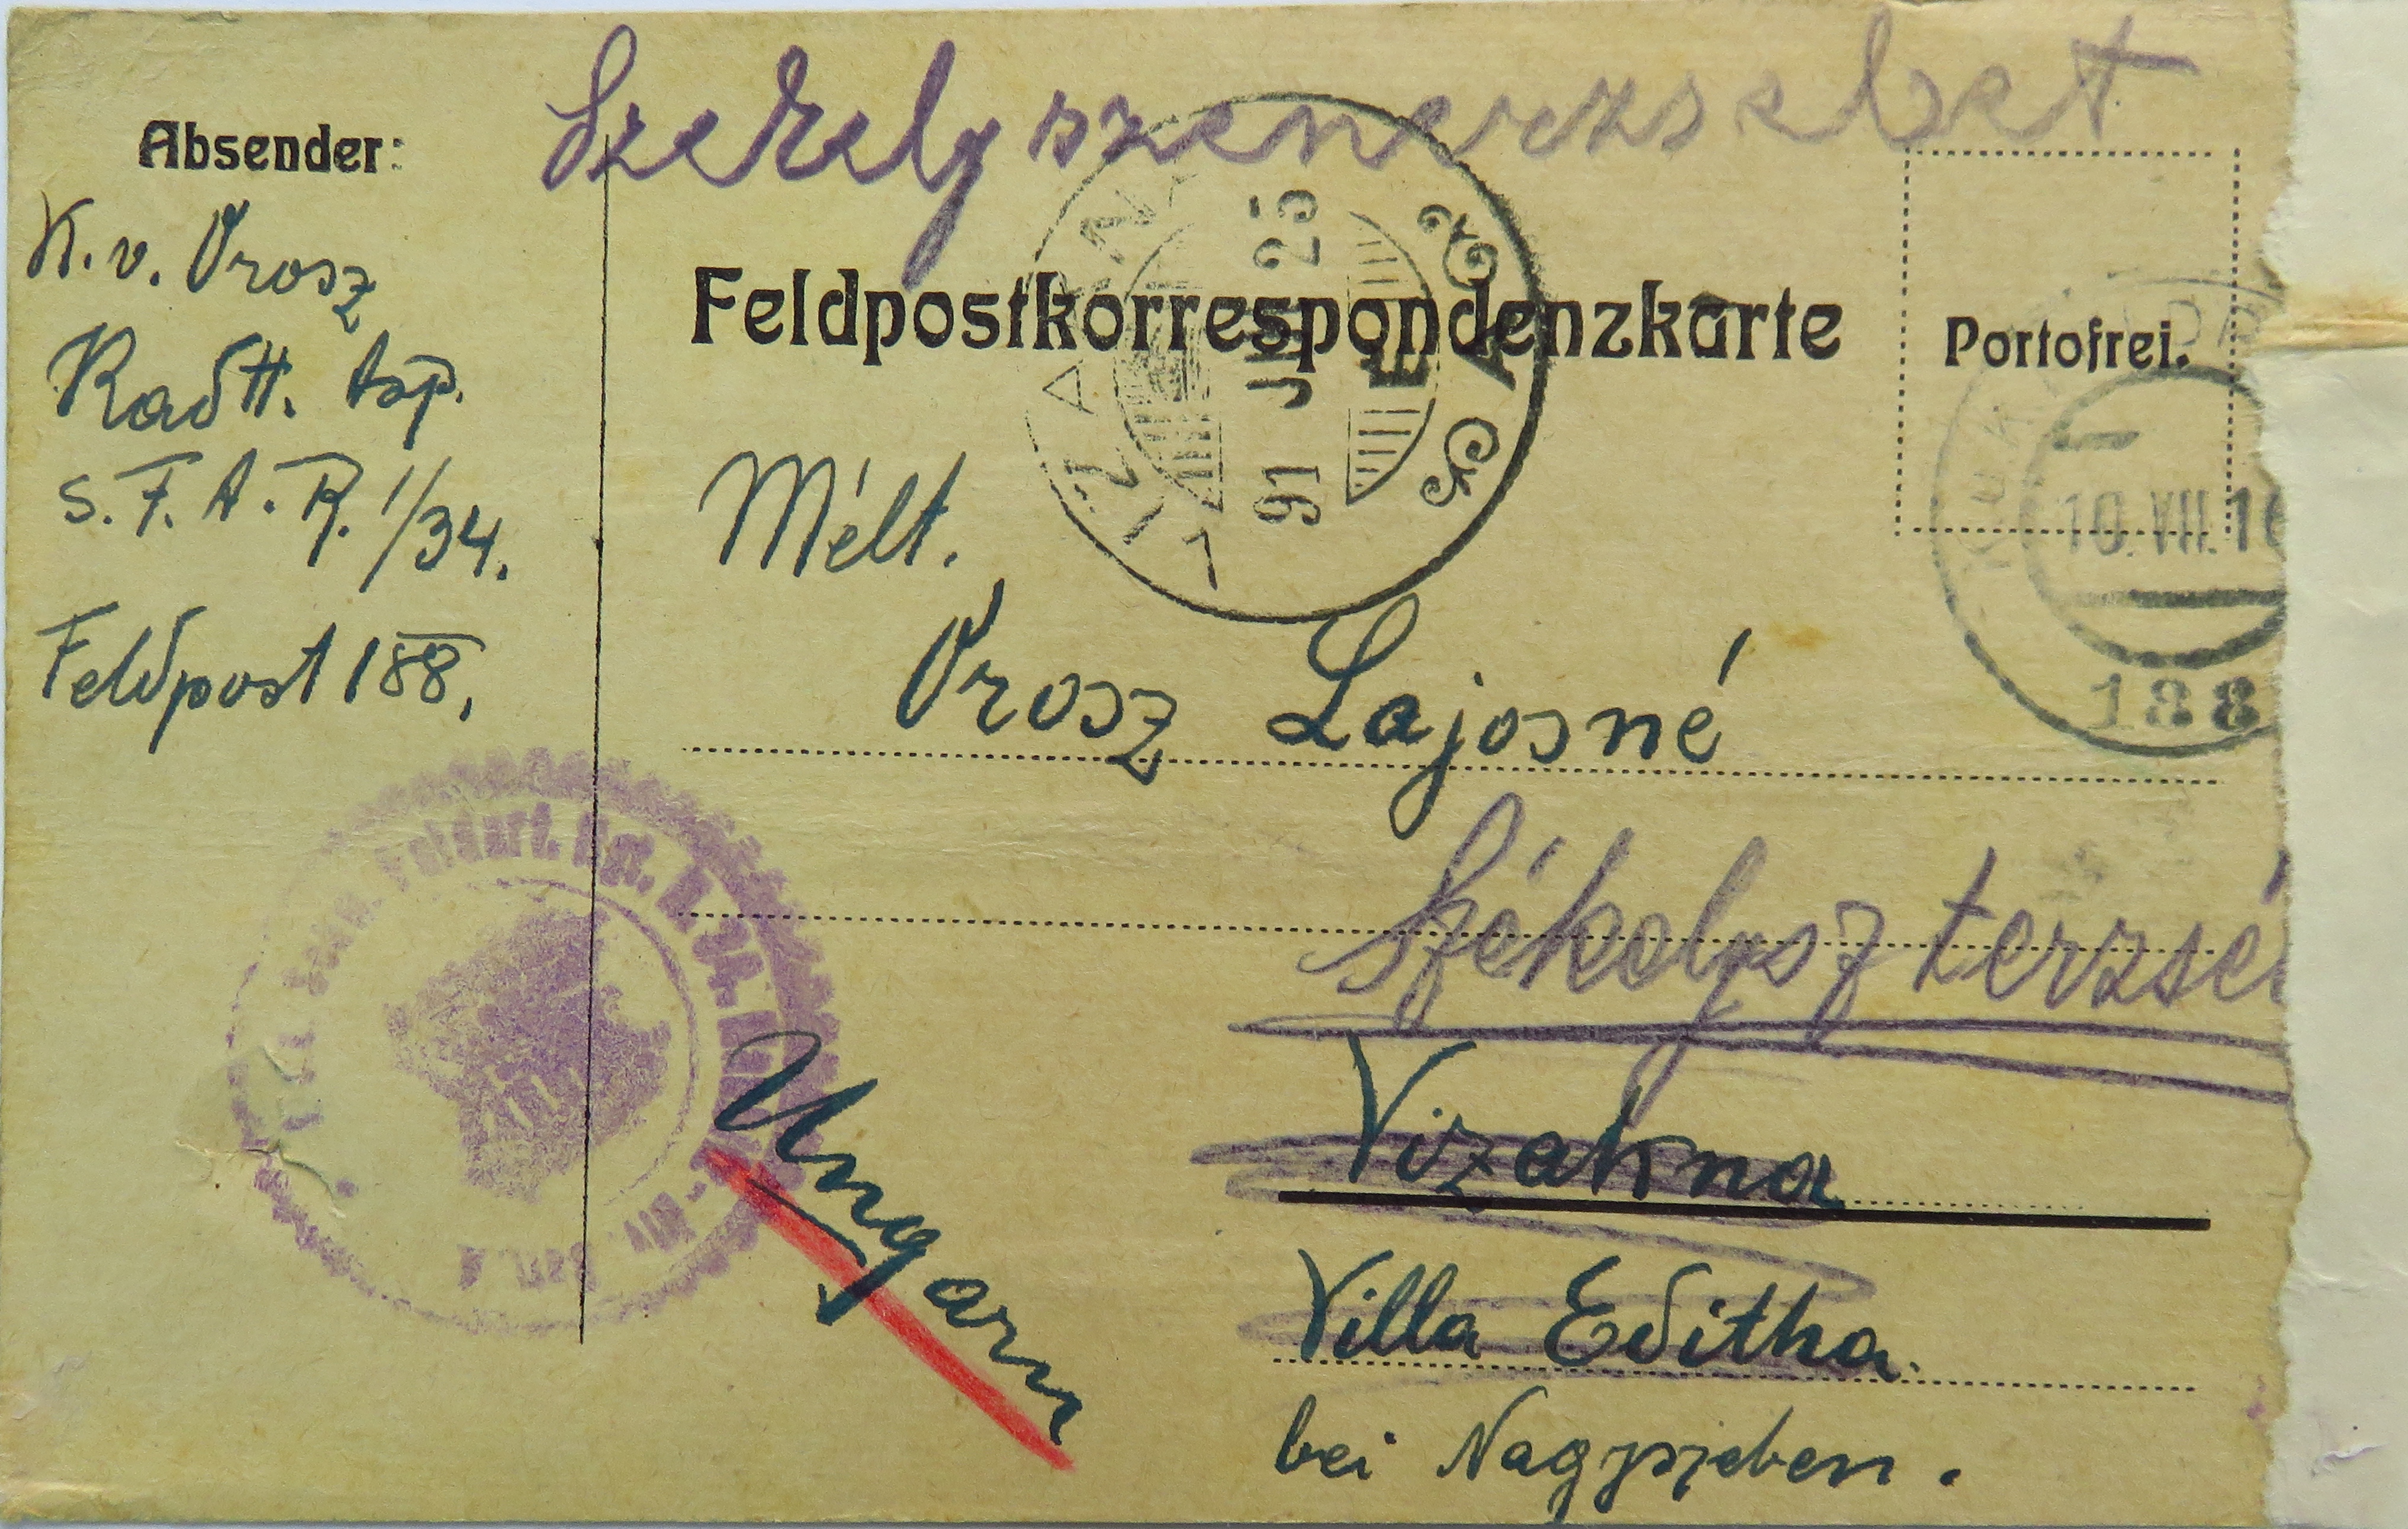 Szekelyszenerzsebet
Absender:
K. v. Orosz
Kadtt. Asp.
S. F. A. R. 1/34.
Feldpost 188.
Feldpostkorrespondenzkarte
Portofrei.
VIZAKNA
916 JUL 25
10.VII.16
188
Mélt.
Orosz Lajosné
Székelysz terzsé
Vizakna
Villa Editha.
bei Nagyszeben.
Ungarn